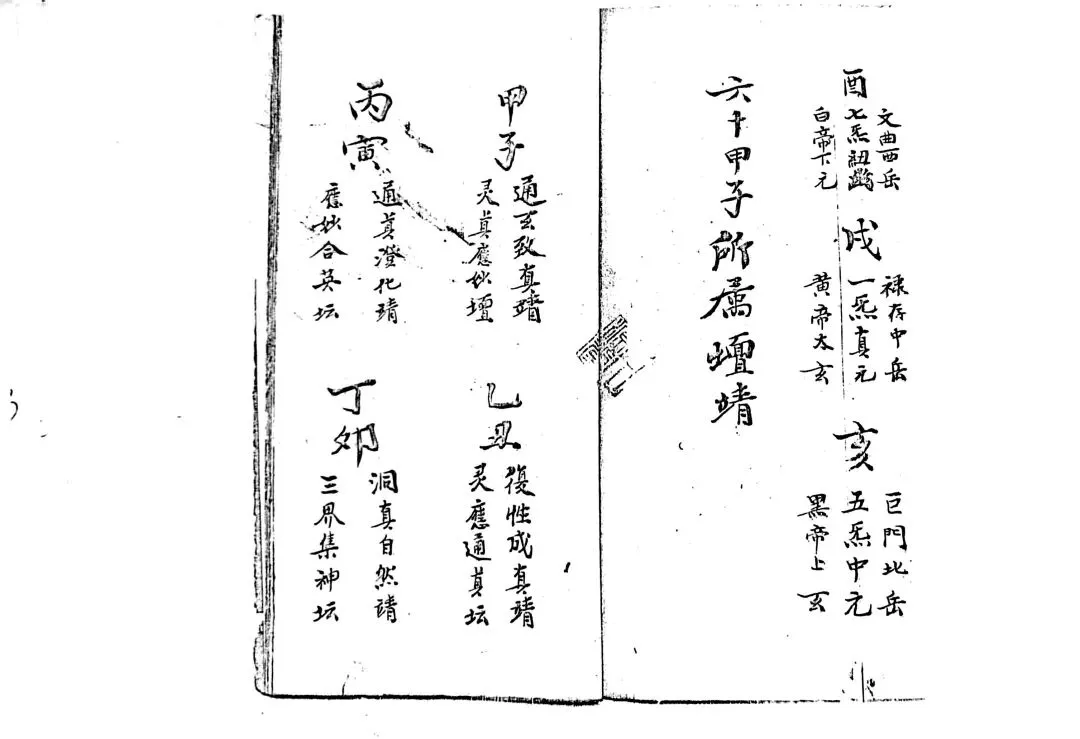 酉
文曲西岳
七炁
白帝下元
戌
禄存中岳
一炁真元
黄帝太玄
亥
巨門北岳
五炁中元
黑帝上玄
六十甲子所属壇靖
甲子
通玄致真靖
灵真應妙壇
乙丑
復性成真靖
灵應通真坛
丙寅
通真澄化靖
應妙合英坛
丁卯
洞真自然靖
三界集神坛